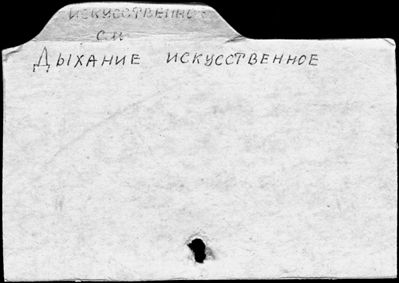 ИСКУССТВЕННО
см
ДЫХАНИЕ ИСКУССТВЕННОЕ